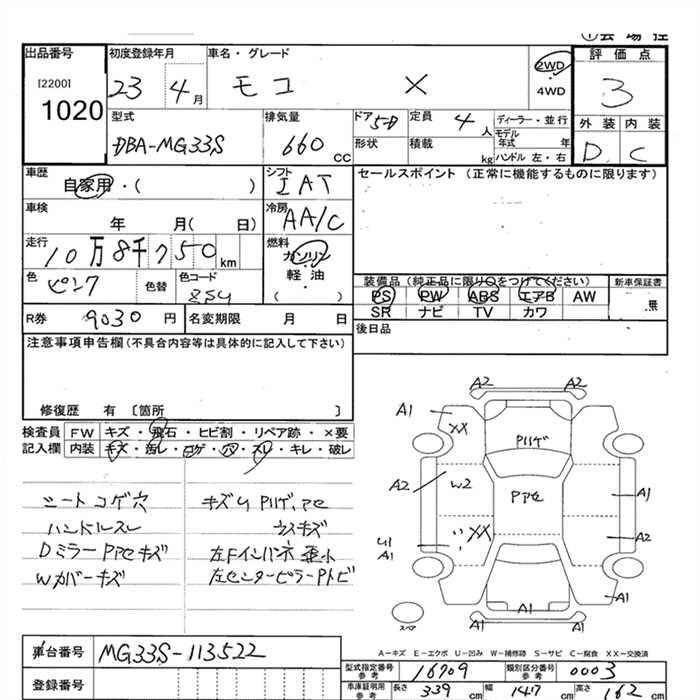 出品番号 初度登録年月 車名・グレード 評価点
[2200] 23 4月 モコ X 2WD 4WD 3
1020
外装 内装
D C
型式 DBA-MG33S 排気量 660 cc ドア 5D 形状 定員 4人 積載 kg ディーラー・並行 モデル年式 年 ハンドル 左・右
車歴 自家用・( ) シフト IAT セールスポイント (正常に機能するものに限ります)
車検 年 月( 日) 冷房 AA/C
走行 10万8千750km 燃料 ガソリン 軽油 ( )
色 ピンク 色替 色コード 装備品 (純正品に限り○をつけてください) 新車保証書
PS PW ABS エアB AW 無
SR ナビ TV カワ
R券 9030円 名変期限 月 日 後日品
注意事項申告欄 (不具合内容等は具体的に記入して下さい)
修復歴 有 〔箇所 〕
検査員 FW キズ・飛石・ヒビ割・リペア跡・×要
記入欄 内装 キズ・汚レ・コゲ・穴・スレ・キレ・破レ
シートコゲ穴 キズU P11ゲ、アセ
ハンドルスレ ウスキズ
Dミラー Pアセキズ 左Fインパネ
Wカバーキズ 左センターピラーPトビ
A2 A2
A1 XX P11ゲ
A2 W2 Pアセ A1
U1 A1 XX A2
A1 A1
A1
スペア
A-キズ E-エクボ U-凹み W-補修跡 S-サビ C-腐食 XX-交換済
車台番号 MG33S-113522
型式指定番号 参考 16709 類別区分番号 参考 0003
登録番号 車庫証明用 参考 長さ 339 cm 幅 147 cm 高さ 162 cm